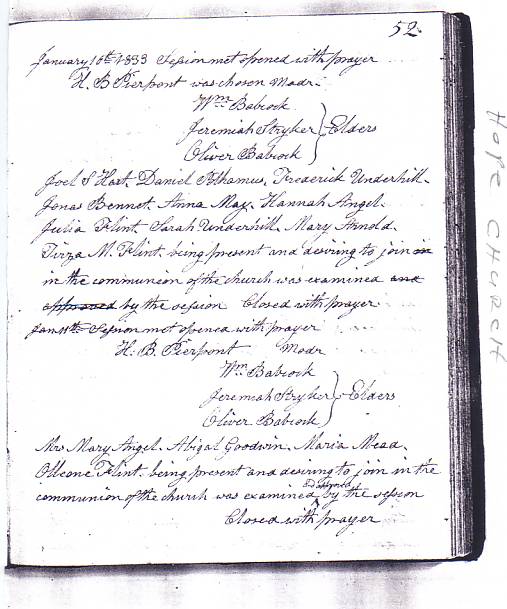 52.
January 10th 1833 Session met opened with prayer
H. B Pierpont was chosen Modr.
Wm Babcock
Jeremiah Stryker } Elders
Oliver Babcock
Joel S Hart, Daniel Polhamus, Frederick Underhill.
Jonas Bennet. Anna May. Hannah Angel.
Julia Flint. Sarah Underhill. Mary Arnold.
Tirza M. Flint. being present and desiring to join in
in the communion of the church was examined and
approved by the session Closed with prayer
Jan 11th Session met opened with prayer
H. B. Pierpont Modr
Wm Babcock
Jeremiah Stryker } Elders
Oliver Babcock
Mrs Mary Angel. Abigal Goodwin. Maria Mead.
Flint. being present and desiring to join in the
communion of the church was examined by the session
Closed with prayer
Hope CHURCH